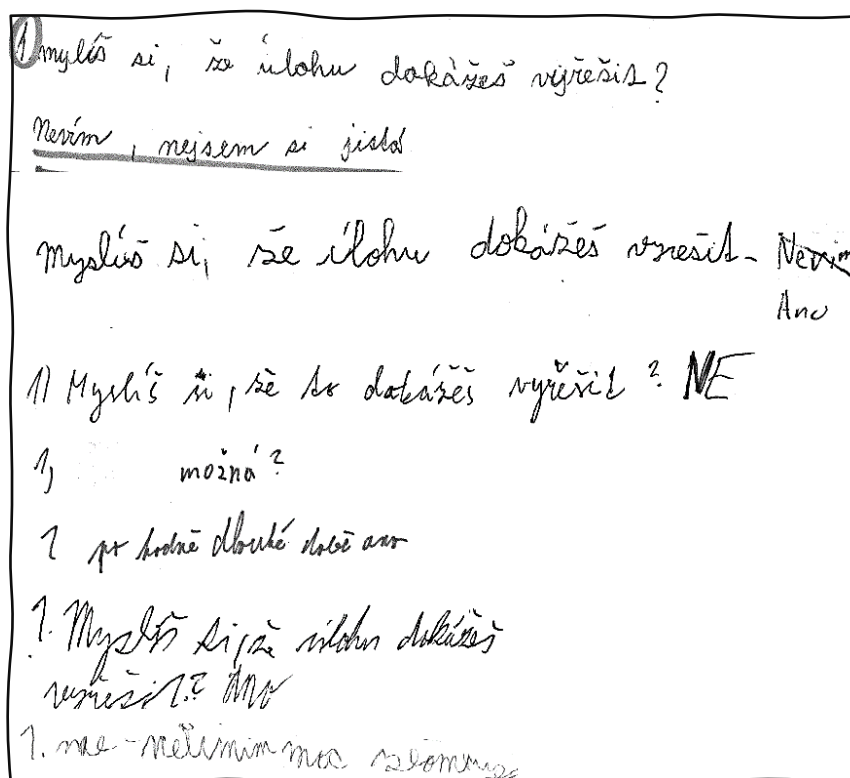 1 myslíš si, že úlohu dokážeš vyřešit?
Nevím, nejsem si jistá
Myslíš si, že úlohu dokážeš vyřešit - Nevím
Ano
1) Myslíš si, že to dokážeš vyřešit? NE
1, možná?
1 po hodně dlouhé době ano
1. Myslíš si, že úlohu dokážeš
vyřešit? Ano
1. ne - moc